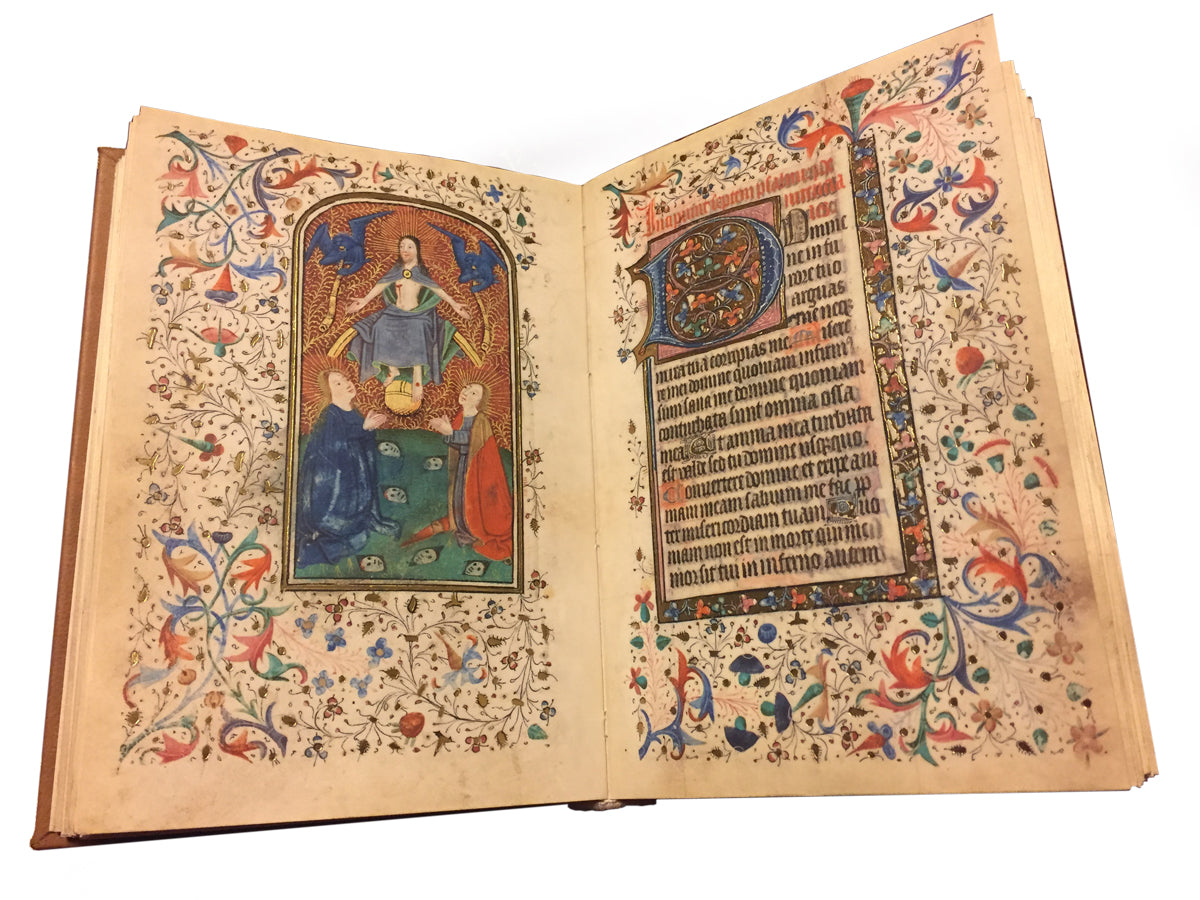 Incipiunt septem psalmi
Domine
ne in fu
tuo
arguas
me neq
tua corripias me Misere
re mei domine quoniam infirm
sum sana me domine quoniam
conturbata sunt omnia ossa
mea Et anima mea turbata
est valde sed tu domine usequo
Convertere domine et eripe ani
mam meam salvum me fac pp
ter misericordiam tuam Quo
niam non est in morte qui me
mor sit tui in inferno autem